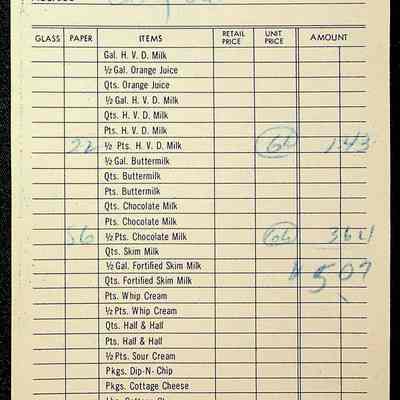 GLASS PAPER ITEMS RETAIL PRICE UNIT PRICE AMOUNT
Gal. H. V. D. Milk
½ Gal. Orange Juice
Qts. Orange Juice
½ Gal. H. V. D. Milk
Qts. H. V. D. Milk
Pts. H. V. D. Milk
22 ½ Pts. H. V. D. Milk 6½ 1.43
½ Gal. Buttermilk
Qts. Buttermilk
Pts. Buttermilk
Qts. Chocolate Milk
Pts. Chocolate Milk
56 ½ Pts. Chocolate Milk 6½ 3 64
Qts. Skim Milk
½ Gal. Fortified Skim Milk
Qts. Fortified Skim Milk 5 07
Pts. Whip Cream
½ Pts. Whip Cream
Qts. Half & Half
Pts. Half & Half
½ Pts. Sour Cream
Pkgs. Dip-N-Chip
Pkgs. Cottage Cheese